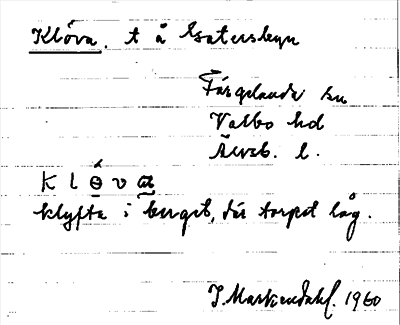 Klöva. t å Gatersbyn
Färgelanda sn
Valbo hd
Älvsb. l.
K l ө́ v a
klyfta i berget, där torpet låg.
J. Markendahl. 1960